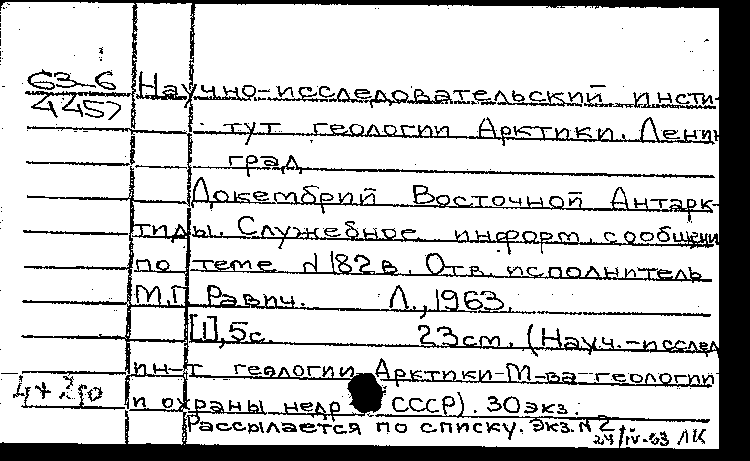 63-6
4457
Научно-исследовательский инсти-
тут геологии Арктики. Ленин
град.
Докембрий Восточной Антарк-
тиды. Служебное информ. сообщени
по теме N 182 в. Отв. исполнитель
М.Г. Равич. Л., 1963.
[1], 5с. 23см. (Науч.-исслед
ин-т геологии Арктики М-ва геологии
и охраны недр СССР). 30 экз.
Рассылается по списку. Экз. N 2
24/IV-63 ЛК